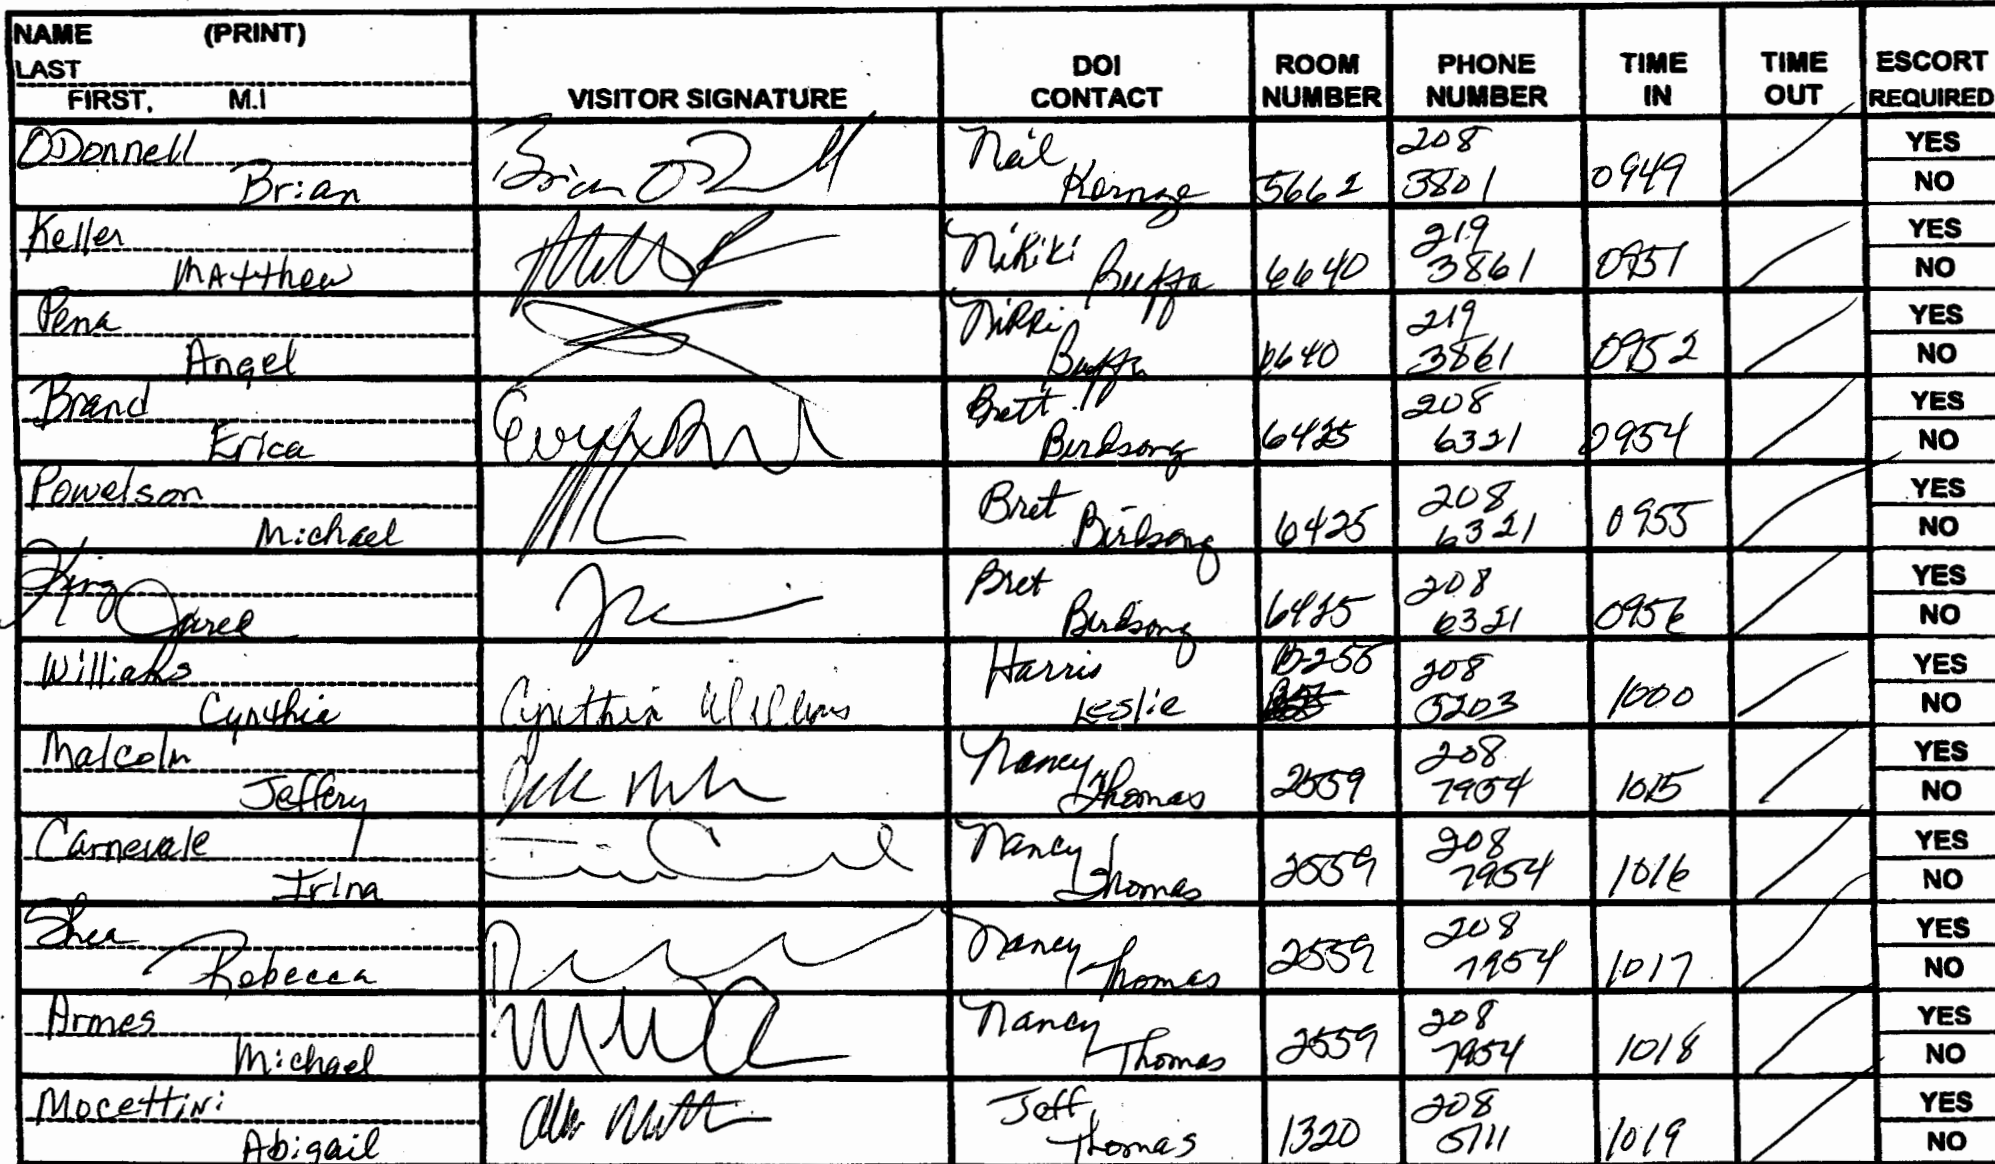 NAME (PRINT)
LAST
FIRST, M.I
VISITOR SIGNATURE
DOI CONTACT
ROOM NUMBER
PHONE NUMBER
TIME IN
TIME OUT
ESCORT REQUIRED
ODonnell Brian Brian Neil Kornze 5662 208 3801 0949 YES NO
Keller Matthew Nikiki Buffa 6640 219 3861 0951 YES NO
Pena Angel Nikki Buffa 6640 219 3861 0952 YES NO
Brand Erica Brett Birdsong 6425 208 6321 0954 YES NO
Powelson Michael Bret Birdsong 6425 208 6321 0955 YES NO
King Jared Bret Birdsong 6425 208 6321 0956 YES NO
Williams Cynthia Cynthia Williams Harris Leslie B-255 208 5203 1000 YES NO
Malcolm Jeffery Nancy Thomas 2559 208 7954 1015 YES NO
Carnevale Irina Nancy Thomas 2559 208 7954 1016 YES NO
Shea Rebecca Nancy Thomas 2559 208 7954 1017 YES NO
Armes Michael Nancy Thomas 2559 208 7954 1018 YES NO
Mocettini Abigail Jeff Thomas 1320 208 5711 1019 YES NO